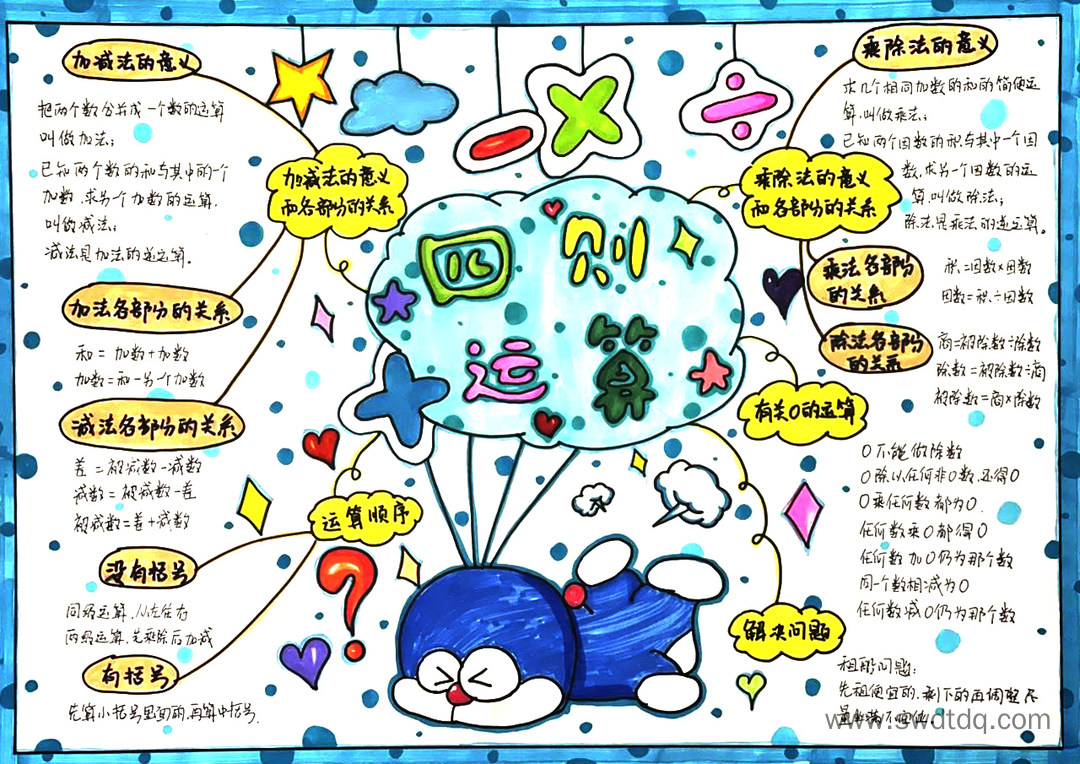 四则
运算
加减法的意义
而各部份的关系
加减法的意义
把两个数合并成一个数的运算
叫做加法;
已知两个数的和与其中的一个
加数,求另一个加数的运算.
叫做减法;
减法是加法的逆运算.
加法各部份的关系
和 = 加数+加数
加数=和-另一个加数
减法各部份的关系
差 = 被减数-减数
减数 = 被减数-差
被减数=差+减数
运算顺序
没有括号
同级运算,从左往右
两级运算,先乘除后加减
有括号
先算小括号里面的,再算中括号.
乘除法的意义
和各部份的关系
乘除法的意义
求几个相同加数的和的简便运
算,叫做乘法;
已知两个因数的积与其中一个因
数,求另一个因数的运
算,叫做除法;
除法是乘法的逆运算.
乘法各部份
的关系
积=因数×因数
因数=积÷因数
除法各部份
的关系
商=被除数÷除数
除数=被除数÷商
被除数=商×除数
有关0的运算
0不能做除数
0除以任何非0数,还得0
0乘任何数都为0.
任何数乘0都得0
任何数加0仍为那个数
同一个数相减为0
任何数减0仍为那个数
解决问题
租船问题:
先租便宜的,剩下的再调整尽
量
www.swdtdq.com